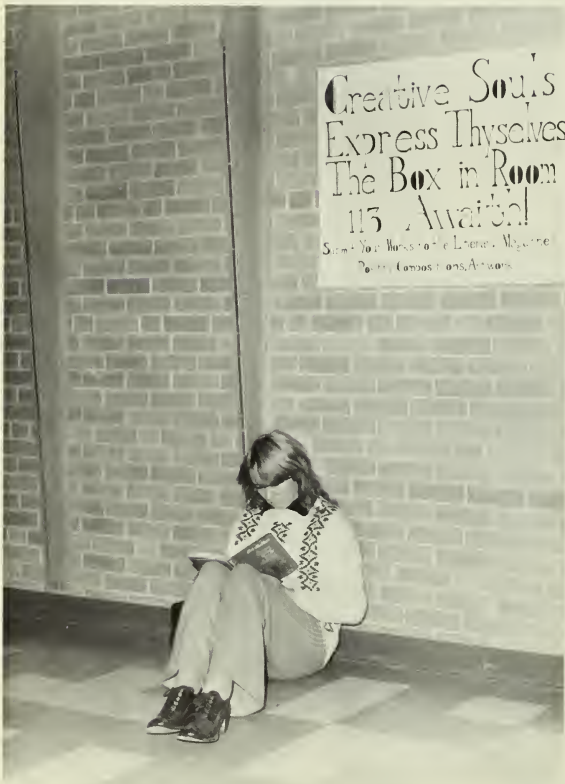 Creative Souls
Express Thyselves
The Box in Room
113 Awaiteth!
Submit Your Works to the Literary Magazine
Poetry, Compositions, Artwork